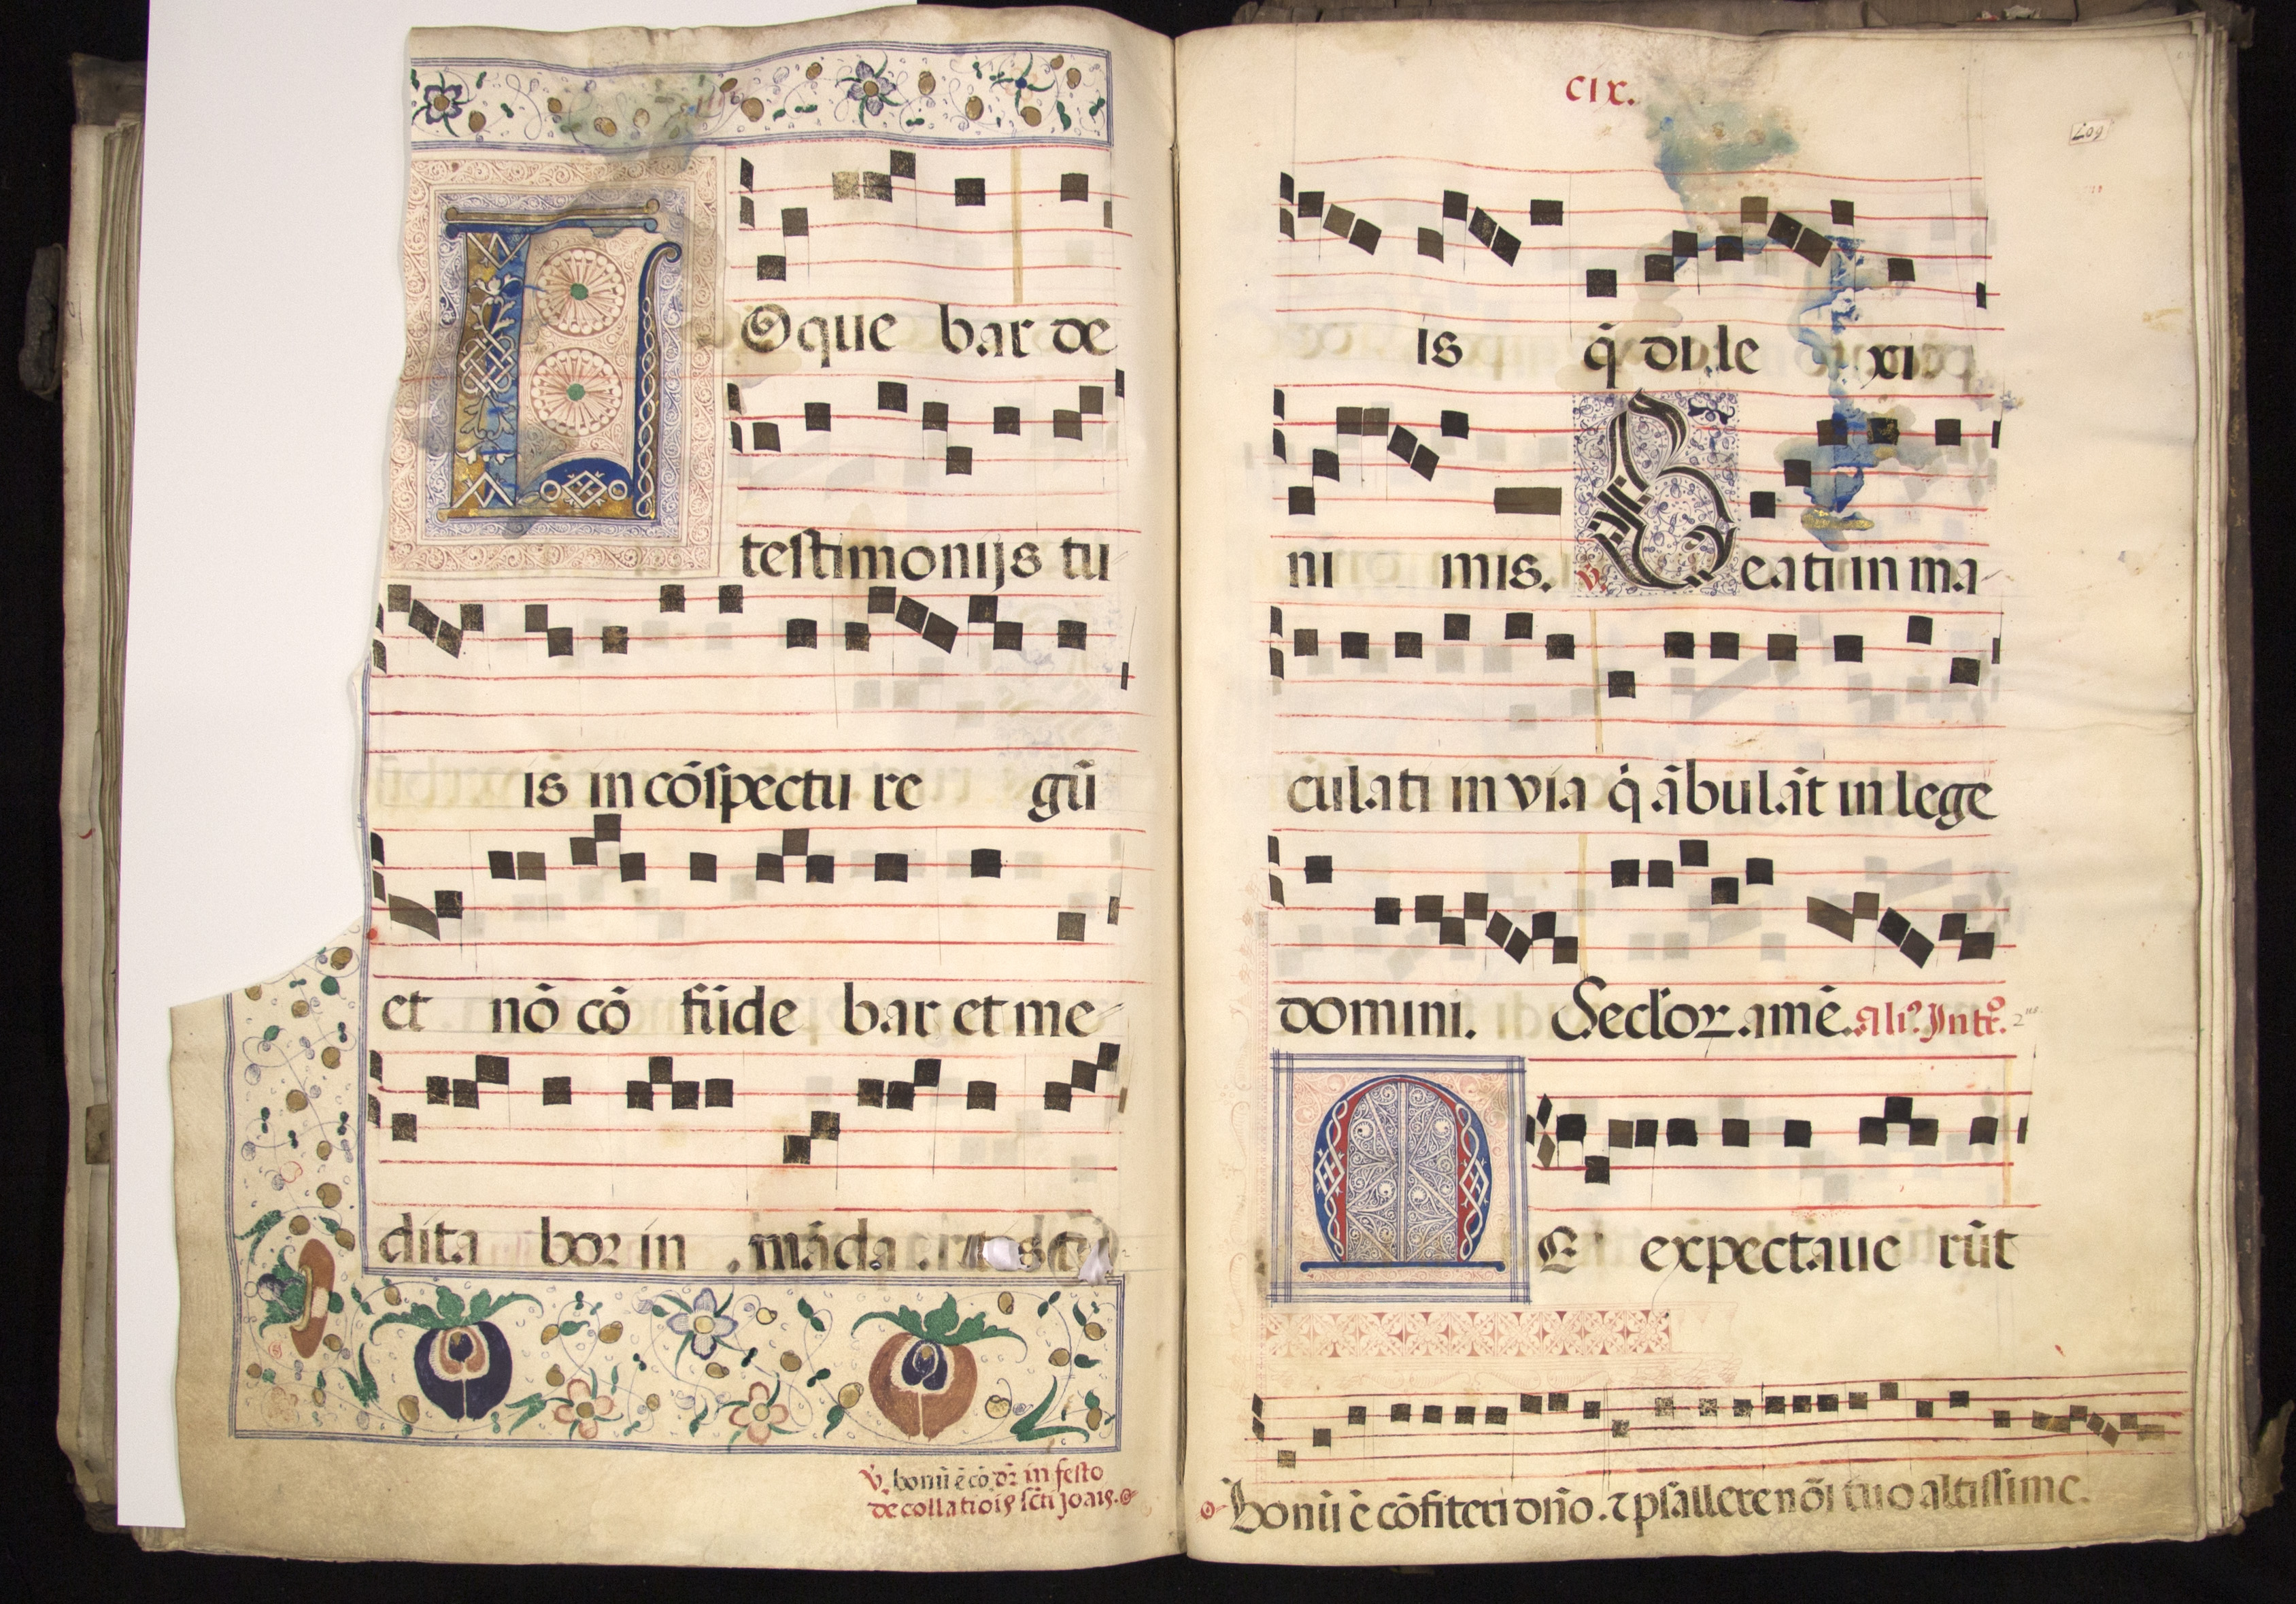 LOque bar de
testimonijs tu
is in cōspectu re gū
et nō cō fūde bar et me
dita bor in māda tis tu
v̇. bonū ē cō. dr̄ in festo
de collatiōis scti joāis.
CIX.
109
is q̄ di le xi
ni mis. v̇. Beati in ma
culati in via q̇ ābulāt in lege
domini. Seclor̄. amē. Ali⁹. Introº. 2us
ME expectaue rūt
Bonū ē cōfiteri dño. ⁊ psallere nōi tuo altissime.